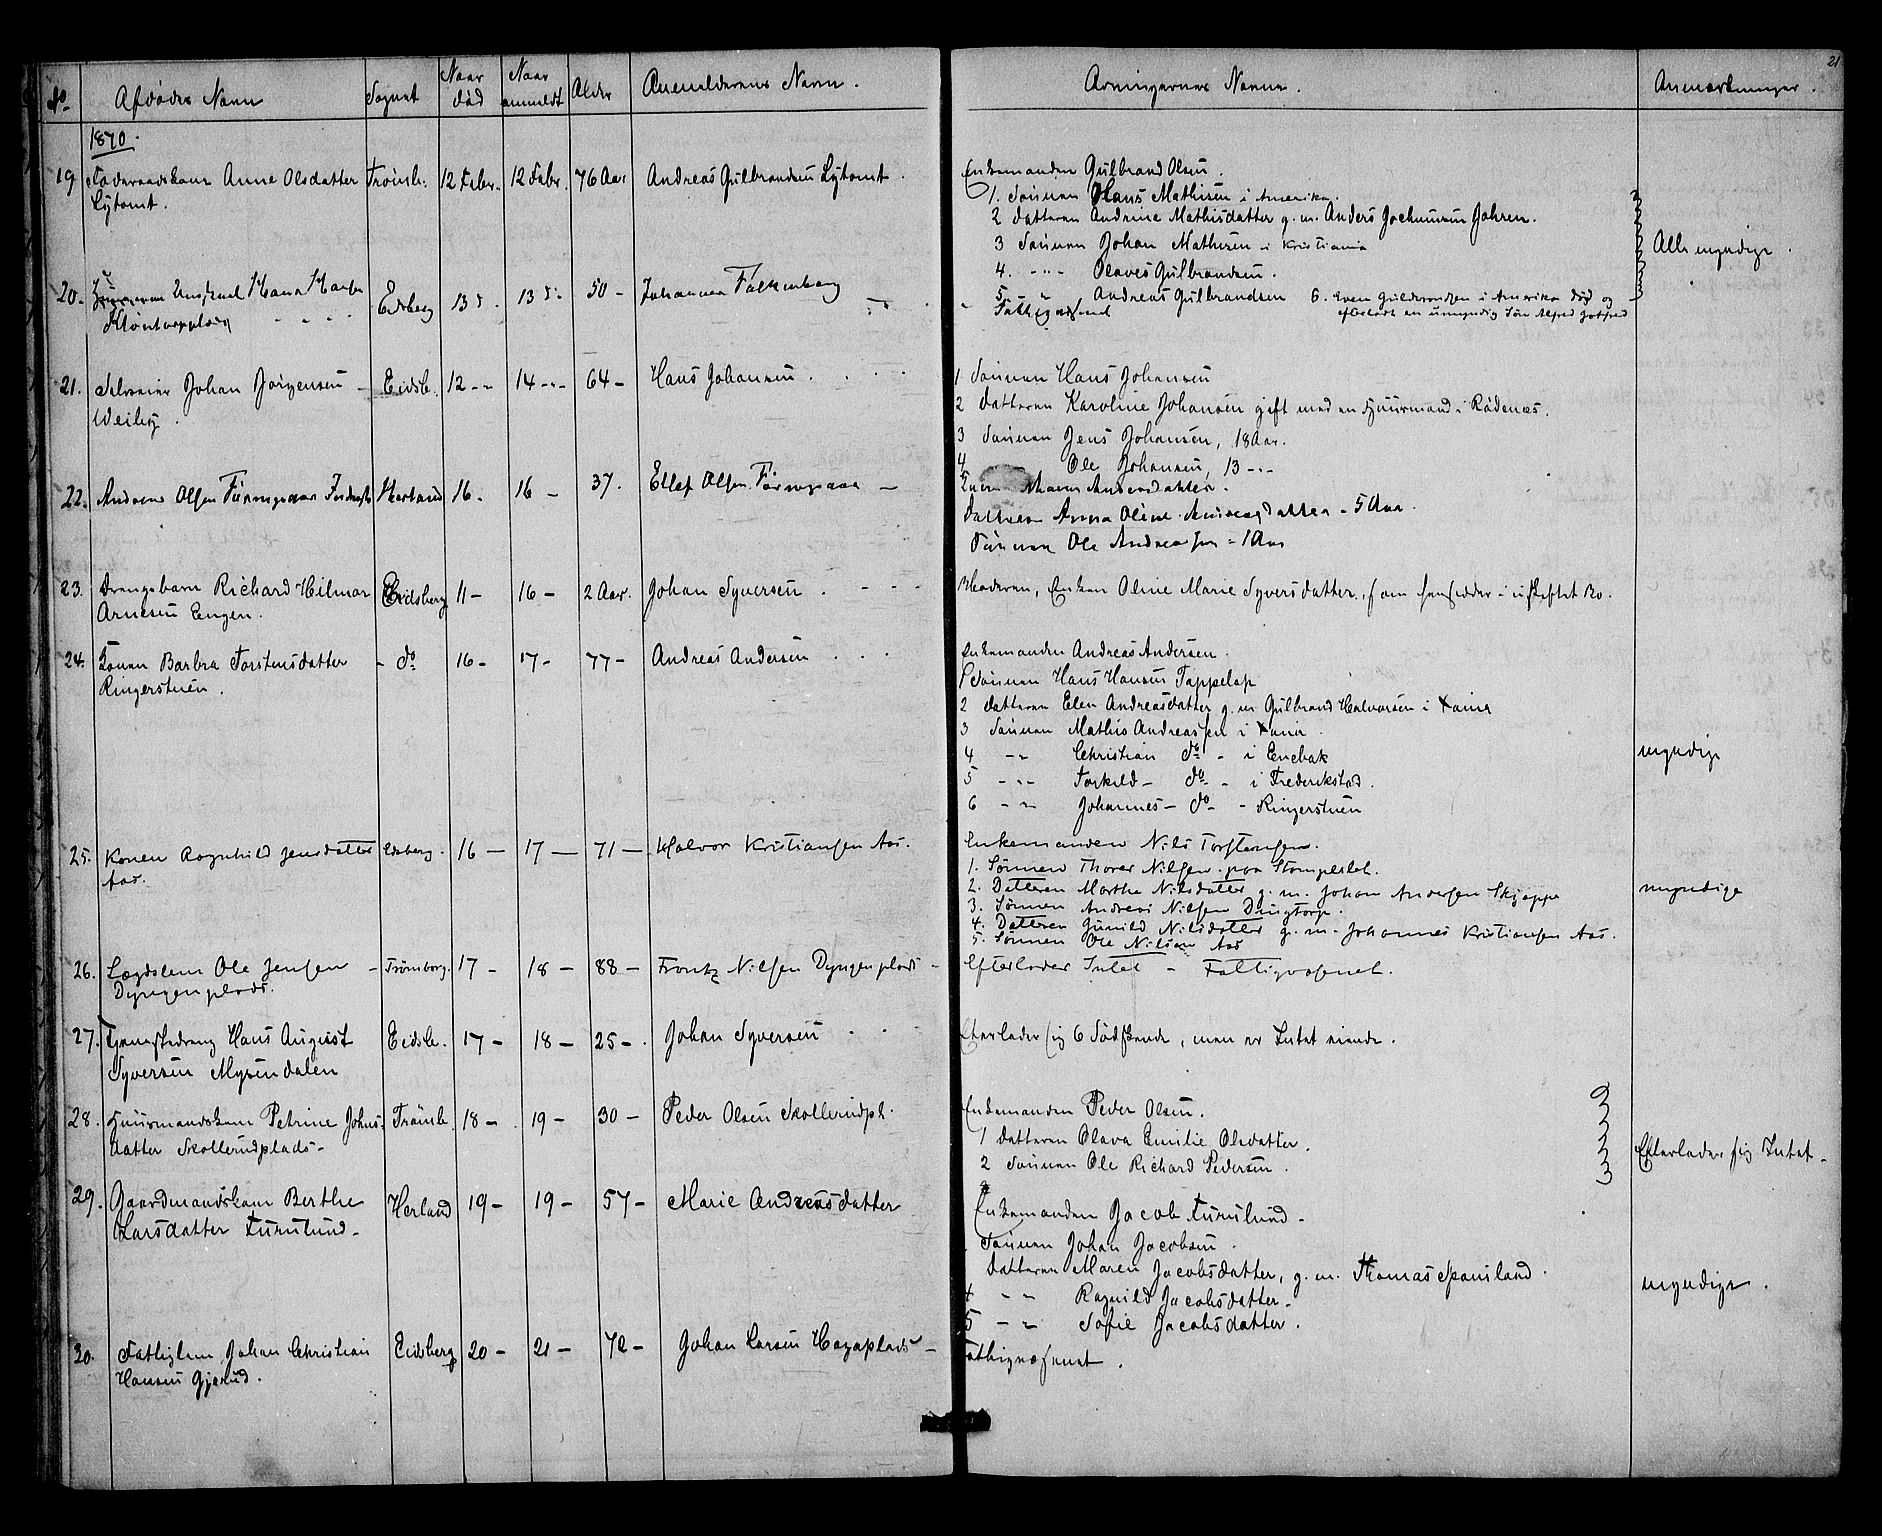 21
No Afdødes Navn Sognet Naar død Naar anmeldt Alder Anmelderens Navn. Arvingernes Navne. Anmærkninger.
1870.
19 Anne Olsdatter Trömb. 12 Febr. 12 Febr. 76 Aar Andreas Gulbrandsen Lytomt.
Lytomt.
Enkemanden Gulbrand Olsen.
1. Sönnen Hans Mathisen i Amerika.
2 Datteren Andrine Mathisdatter g. m. Anders Jochumsen Jahren.
3 Sönnen Johan Mathisen i Kristiania
Alle myndige.
4. -"- Olaves Gulbrandsen.
5 - " Andreas Gulbrandsen 6. Even Gulbrandsen i Amerika död og
efterladt en umyndig Sön Alfred
20. Hans Eidsberg 13 13 50 - Johannes Falkenberg
Fattigvæsenet
21. Selveier Johan Jörgensen Eidsb. 12 -"- 14 -"- 64 - Hans Johansen.
Weiby.
1 Sönnen Hans Johansen
2 Datteren Karoline Johansen gift med en Huusmand i Rödenæs.
3 Sönnen Jens Johansen, 18 Aar.
4 Ole Johansen, 13 -"-
22. Andreas Olsen Herland 16. 16 - 37. Ellef Olsen
Andersdatter.
Datteren Anna Oline Andreasdatter - 5 Aar.
Sönnen Ole Andreassen - 1 Aar
23. Drengebarn Richard Hilmar Eidsberg 11 - 16 - 2 Aar. Johan Syversen
Arnesen Engen.
Moderen, Enken Oline Marie Syversdatter, som hensidder i uskiftet Bo.
24. Konen Barbra Torstensdatter - do 16 - 17 - 77 - Andreas Andersen
Ringerstuen.
Enkemanden Andreas Andersen.
1 Sönnen Hans Hansen
2 Datteren Elen Andreasdatter g. m. Gulbrand Halvorsen i Xania
3 Sönnen Mathis Andreassen i Xania.
4 -"- Christian do - i Enebak
myndige
5 -"- Torkild - do - i Frederikstad.
6 -"- Johannes - do - Ringerstuen
25. Konen Ragnhild Jensdatter Edsberg. 16 - 17 - 71 - Halvor Kristiansen Aas.
Aas.
Enkemanden Nils Torstensen.
1. Sönnen Thorer Nilsen paa
2. Datteren Marthe Nilsdatter g. m. Johan Andersen Skjeppe
myndige
3. Sönnen Andreas Nilsen
4. Datteren Gunild Nilsdatter g. m. Johannes Kristiansen Aas.
5. Sönnen Ole Nilsen Aas
26. Lægdslem Ole Jensen - Trömborg. 17 - 18 - 88 - Frantz Nilsen Dyngenplads -
Dyngenplads.
Efterlader Intet - Fattigvæsenet.
27. Tjenestedreng Hans August Eidsb. 17 - 18 - 25 -. Johan Syversen
Syversen Mysendalen
Efterlader sig 6 Södskende, men er Intet eiende.
28. Huusmandskone Petrine Johns- Trömb. 18 - 19 - 30 - Peder Olsen Skollerudpl.
datter Skollerudplads -
Enkemanden Peder Olsen.
1 Datteren Olava Emilie Olsdatter.
Efterlader sig Intet -
2 Sönnen Ole Richard Pedersen.
29. Gaardmandskone Berthe Herland 19 - 19 - 57 - Marie Andreasdatter
Larsdatter Furulund -
Enkemanden Jacob Furulund -
Sönnen Johan Jacobsen.
Datteren Maren Jacobsdatter, g. m. Thomas Spansland.
myndige.
4 -"- Ragnild Jacobsdatter -
5 -"- Sofie Jacobsdatter.
30. Fattiglem Johan Christian Eidsberg 20 - 21 - 72 - Johan Larsen Hagaplads -
Hansen Gjerud.
Fattigvæsenet.